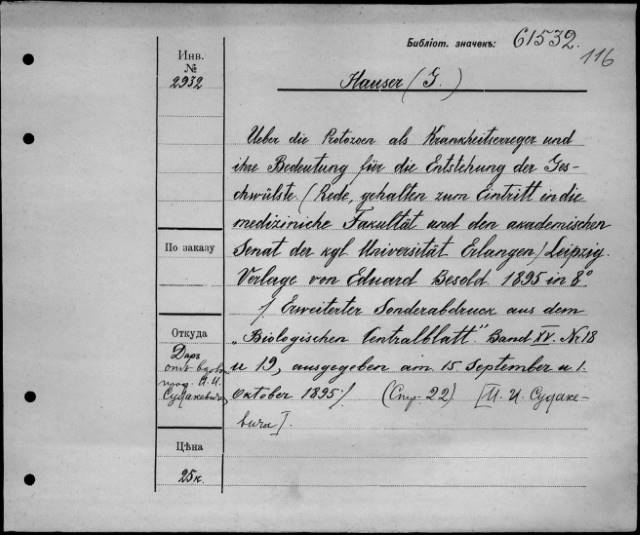 Библіот. значекъ: 61532.
116
Инв.
№
2932
Hauser (G.)
Ueber die Protozoen als Krankheitserreger und
ihre Bedeutung für die Entstehung der Ges-
chwülste. (Rede, gehalten zum Eintritt in die
mediziniche Fakultät und den akademischen
Senat der kgl. Universität Erlangen/ Leipzig.
Verlage von Eduard Besold 1895 in 8°
/ Erweiterter Sonderabdruck aus dem
„Biologischen Centralblatt". Band XV. № 18
u 19, ausgegeben am 15 September u 1.
Oktober 1895/. (Стр. 22) [И. И. Судаке-
вича].
По заказу
Откуда
Даръ
отъ вдовы
проф. И. И.
Судакевича
Цѣна
25 к.